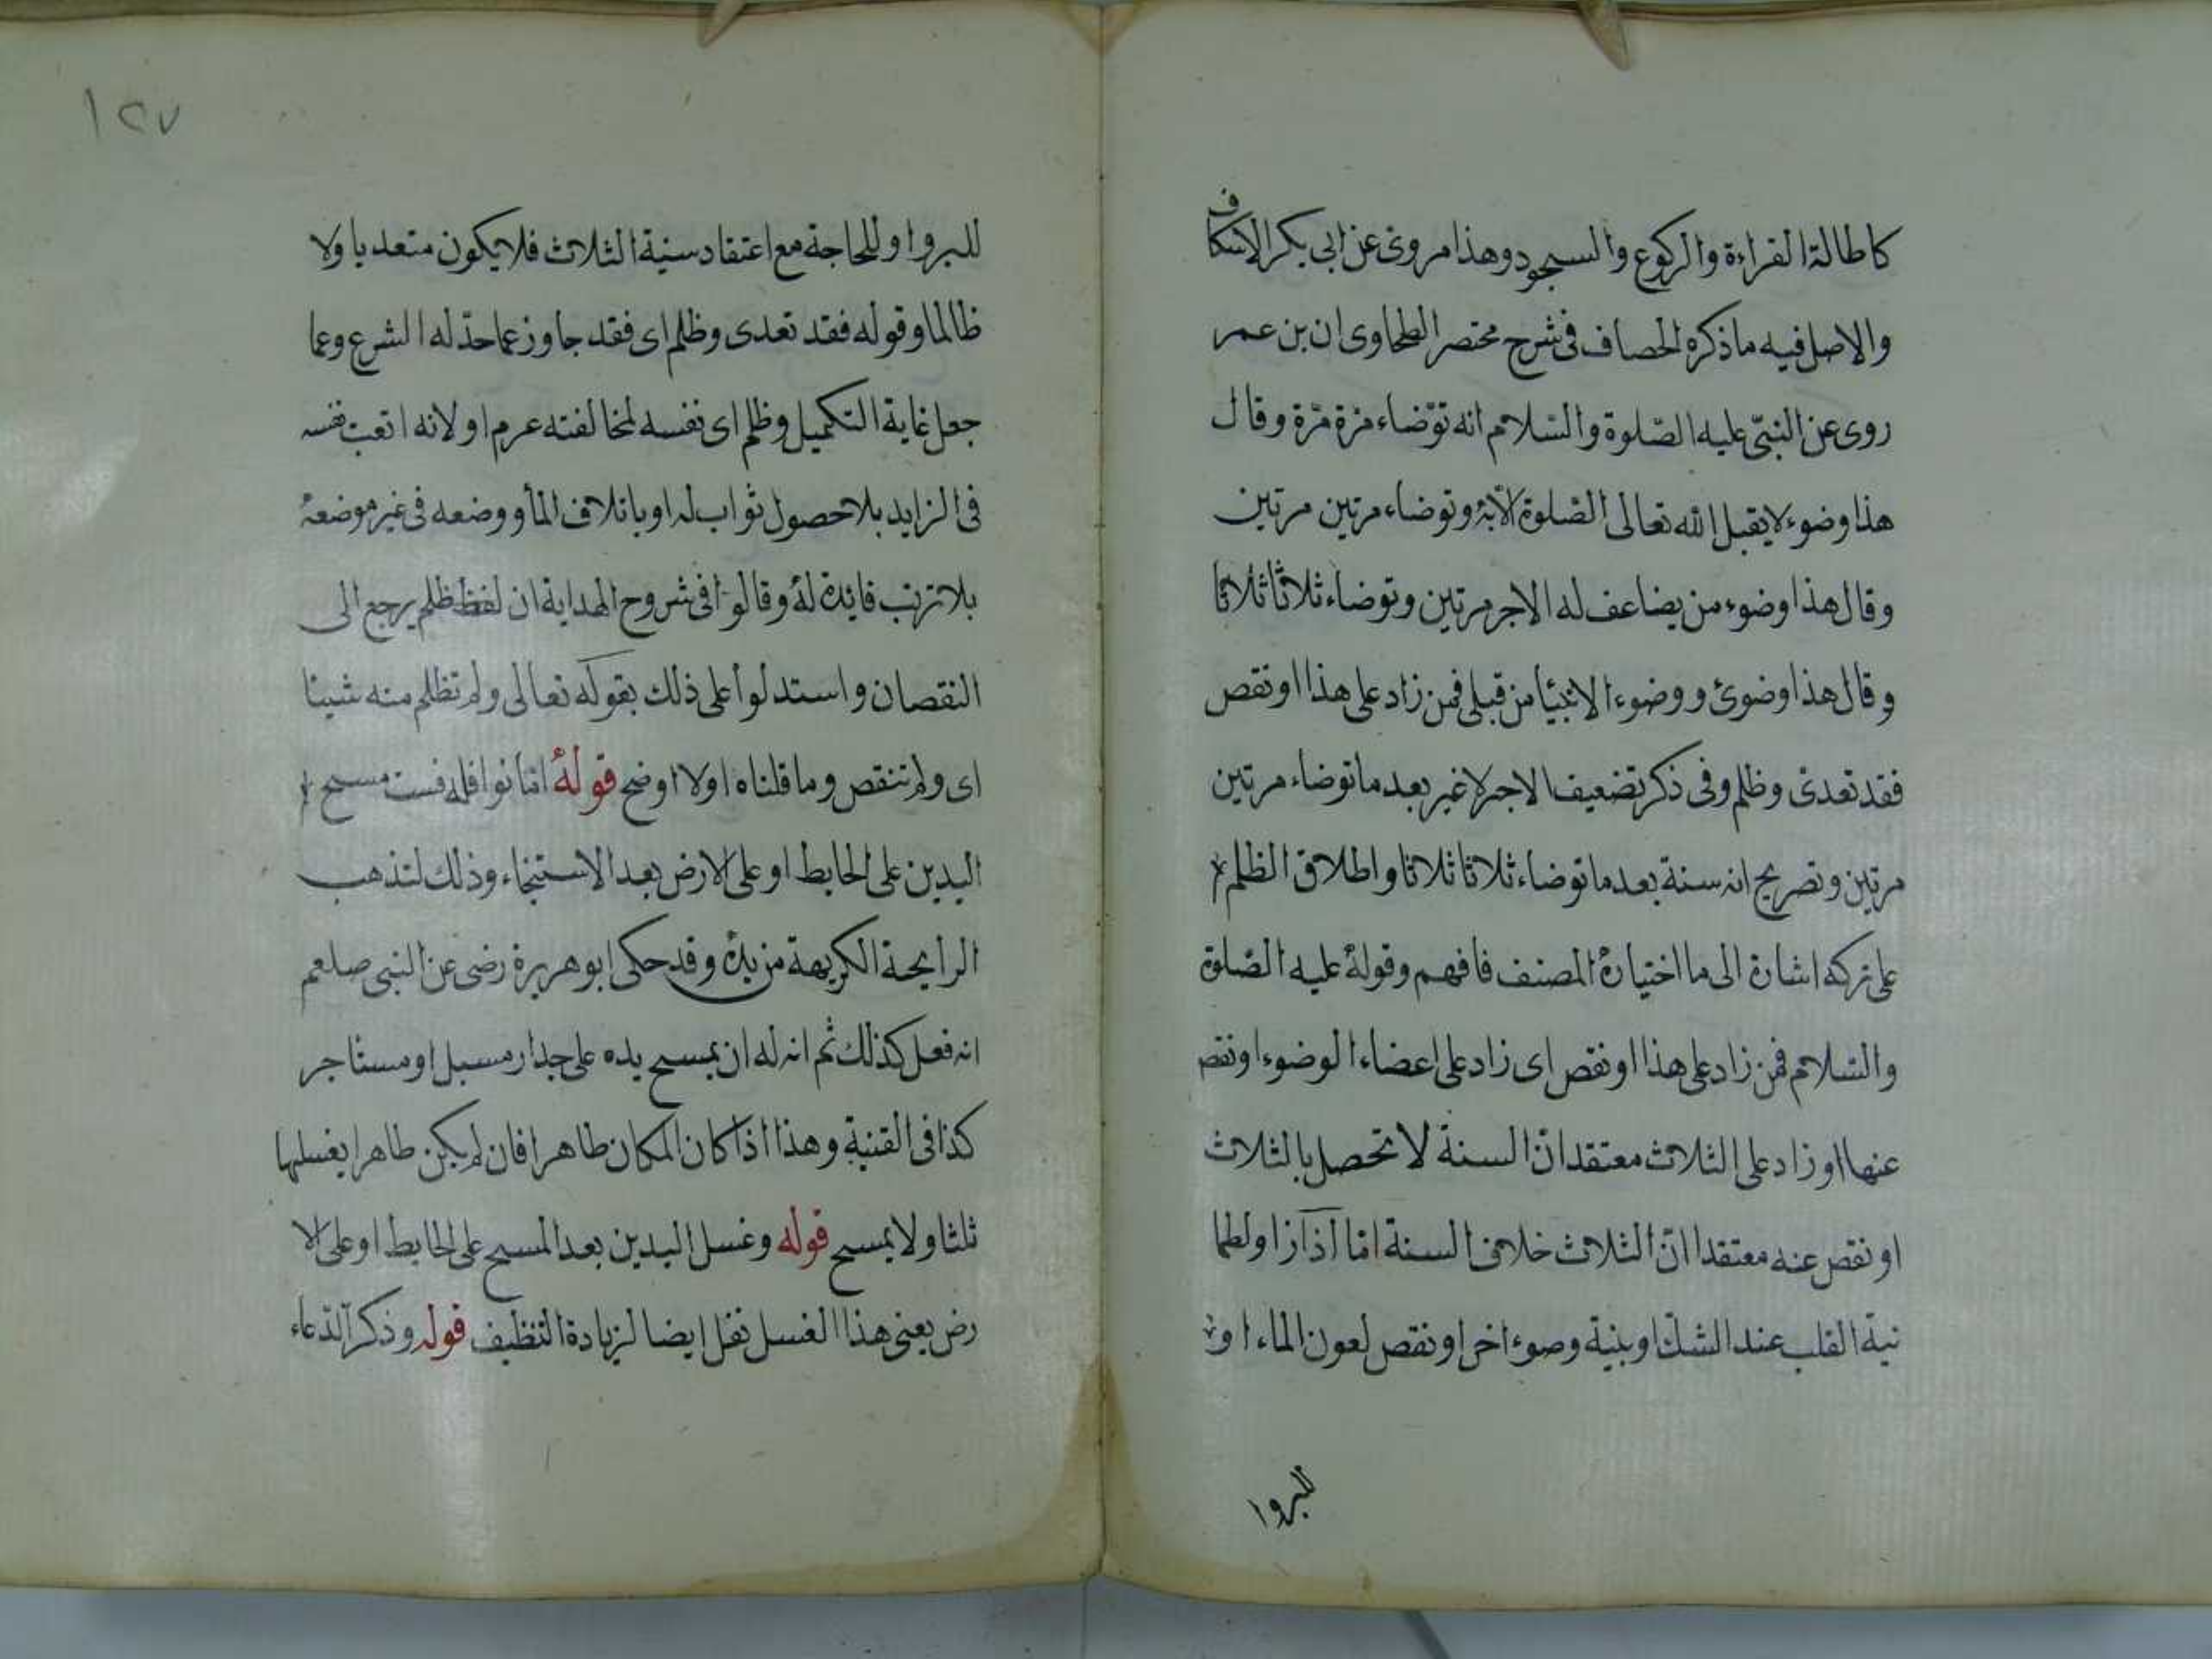 كاطالة القراءة والركوع والسجود وهذا مروى عن ابى بكر الاسكاف
والاصل فيه ما ذكره الخصاف فى شرح مختصر الطحاوى ان بن عمر
روى عن النبىّ عليه الصّلوة والسّلام انه توّضاء مرّة مرّة وقال
هذا وضوء لا يقبل الله تعالى الصّلوة الّا به وتوضاء مرتين مرتين
وقال هذا وضوء من يضاعف له الاجر مرتين وتوضاء ثلاثا ثلاثا
وقال هذا وضوئ ووضوء الانبياء من قبلى فمن زاد على هذا او نقص
فقد تعدى وظلم وفى ذكر تضعيف الاجر لا غير بعد ما توضاء مرتين
مرتين وتصريح انه سنة بعد ما توضاء ثلاثا ثلاثا واطلاق الظلم
على تركه اشارة الى ما اختياره المصنف فافهم وقوله عليه الصّلوة
والسّلام فمن زاد على هذا او نقص اى زاد على اعضاء الوضوء او نقص
عنها او زاد على الثلاث معتقدا انّ السنة لا تحصل بالثلاث
او نقص عنه معتقدا انّ الثلاث خلاف السنة امّا اذا زاد لطما
نية القلب عند الشك او بنية وضوء اخر او نقص لعون الماء او
للبروا
١٢٧
للبروا وللحاجة مع اعتقاد سنية الثلاث فلا يكون متعديا ولا
ظالما وقوله فقد تعدى وظلم اى فقد جاوز عما حدّ له الشرع وعما
جعل غاية التكميل وظلم اى نفسه لمخالفته عرم او لانه اتعب نفسه
فى الزايد بلا حصول ثواب له او باتلاف الماء ووضعه فى غير موضعه
بلا ترتب فايدة له وقالوا فى شروح الهداية ان لفظ ظلم يرجع الى
النقصان واستدلوا على ذلك بقوله تعالى ولم تظلم منه شيئا
اى ولم تنقص وما قلناه اولا اوضح قوله امّا نوافله فست مسح
اليدين على الحايط او على الارض بعد الاستنجاء وذلك لتذهب
الرايحة الكريهة من يده وقد حكى ابو هريرة رضى عن النبى صلعم
انه فعل كذلك ثم انه له ان يمسح يده على جدار مسبل او مستاجر
كذا فى القنية وهذا اذا كان المكان طاهرا فان لم يكن طاهرا يغسلها
ثلثا ولا يمسح قوله وغسل اليدين بعد المسح على الحايط او على الا
رض يعنى هذا الغسل نفل ايضا لزيادة التنظيف قوله وذكر الدّعاء